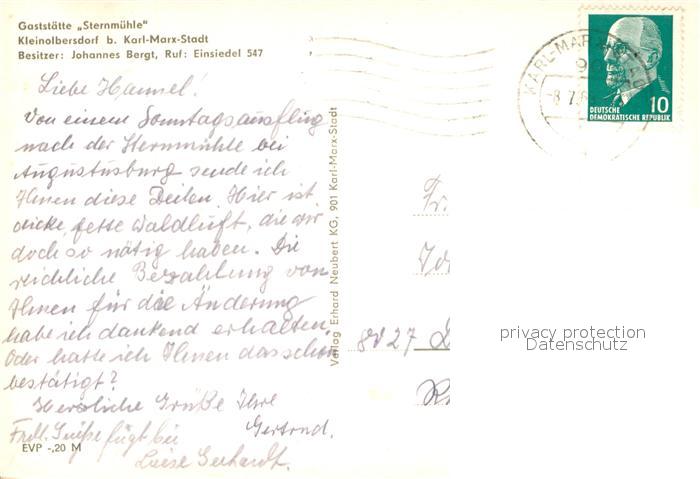 Gaststätte „Sternmühle"
Kleinolbersdorf b. Karl-Marx-Stadt
Besitzer: Johannes Bergt, Ruf: Einsiedel 547
Liebe Hannel!
Von einem Sonntagsausflug
nach der Sternmühle bei
Augustusburg sende ich
Ihnen diese Zeilen. Hier ist
dicke, fette Waldluft, die wir
doch so nötig haben. Die
reichliche Bezahlung von
Ihnen für die Änderung
habe ich dankend erhalten.
Oder hatte ich Ihnen das schon
bestätigt?
Herzliche Grüße Ihre
Gertrud.
Frdl. Grüße fügt bei
Luise Gerhardt.
EVP -,20 M
Verlag Erhard Neubert KG, 901 Karl-Marx-Stadt
KARL-MARX-STADT
90
-8.7.6
10
DEUTSCHE
DEMOKRATISCHE REPUBLIK
Fr.
8027
privacy protection
Datenschutz